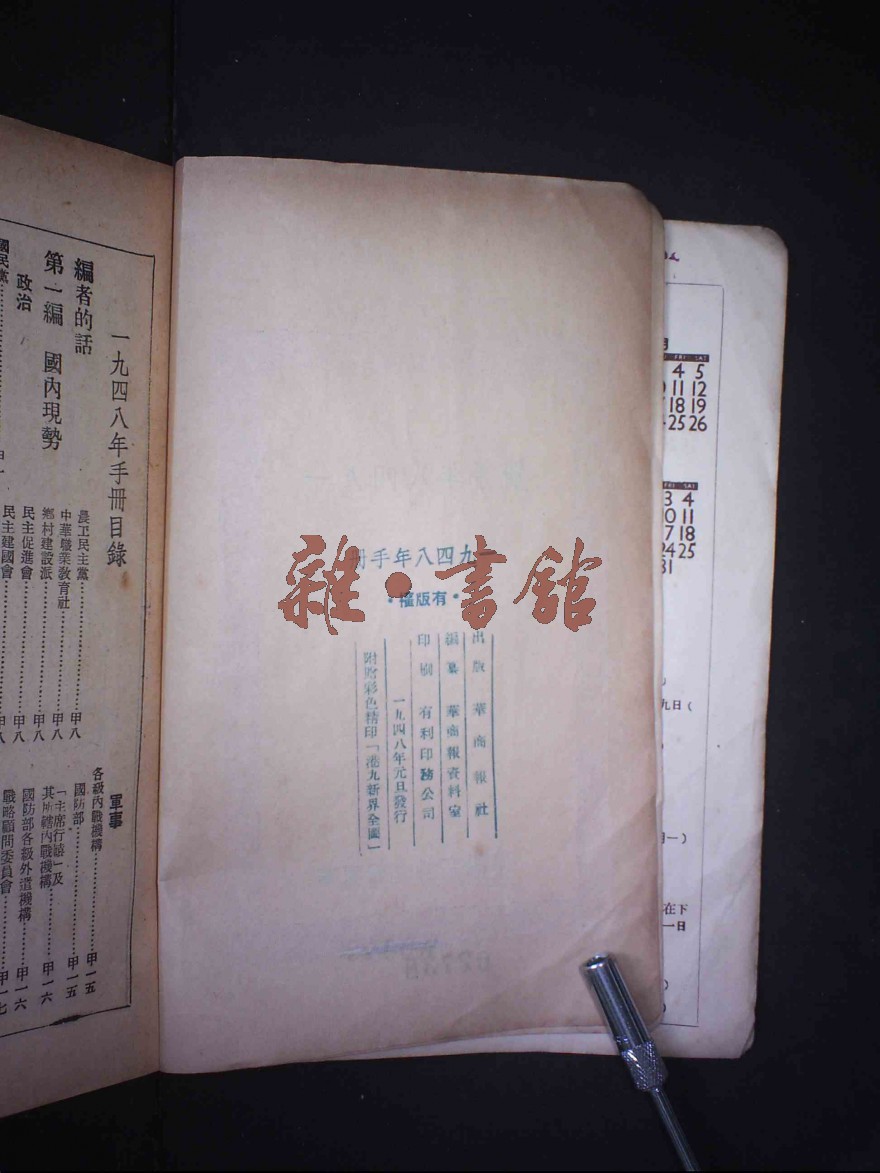 一九四八年手冊目錄
編者的話
第一編 國內現勢
政治
農工民主黨 甲八
中華職業教育社 甲八
鄉村建設派 甲八
民主促進會 甲八
民主建國會 甲八
軍事
各級內戰機構 甲一五
國防部 甲一五
「主席行轅」及
其所轄內戰機構 甲一六
國防部各級外遣機構 甲一六
戰略顧問委員會 甲一七
一九四八年手冊
•有版權•
出版 華商報社
編纂 華商報資料室
印刷 有利印務公司
一九四八年元旦發行
附贈彩色精印「港九新界全圖」
雜•書館
FRI SAT
4 5
11 12
18 19
25 26
FRI SAT
3 4
10 11
17 18
24 25
31
九日(
月一)
在下
一日